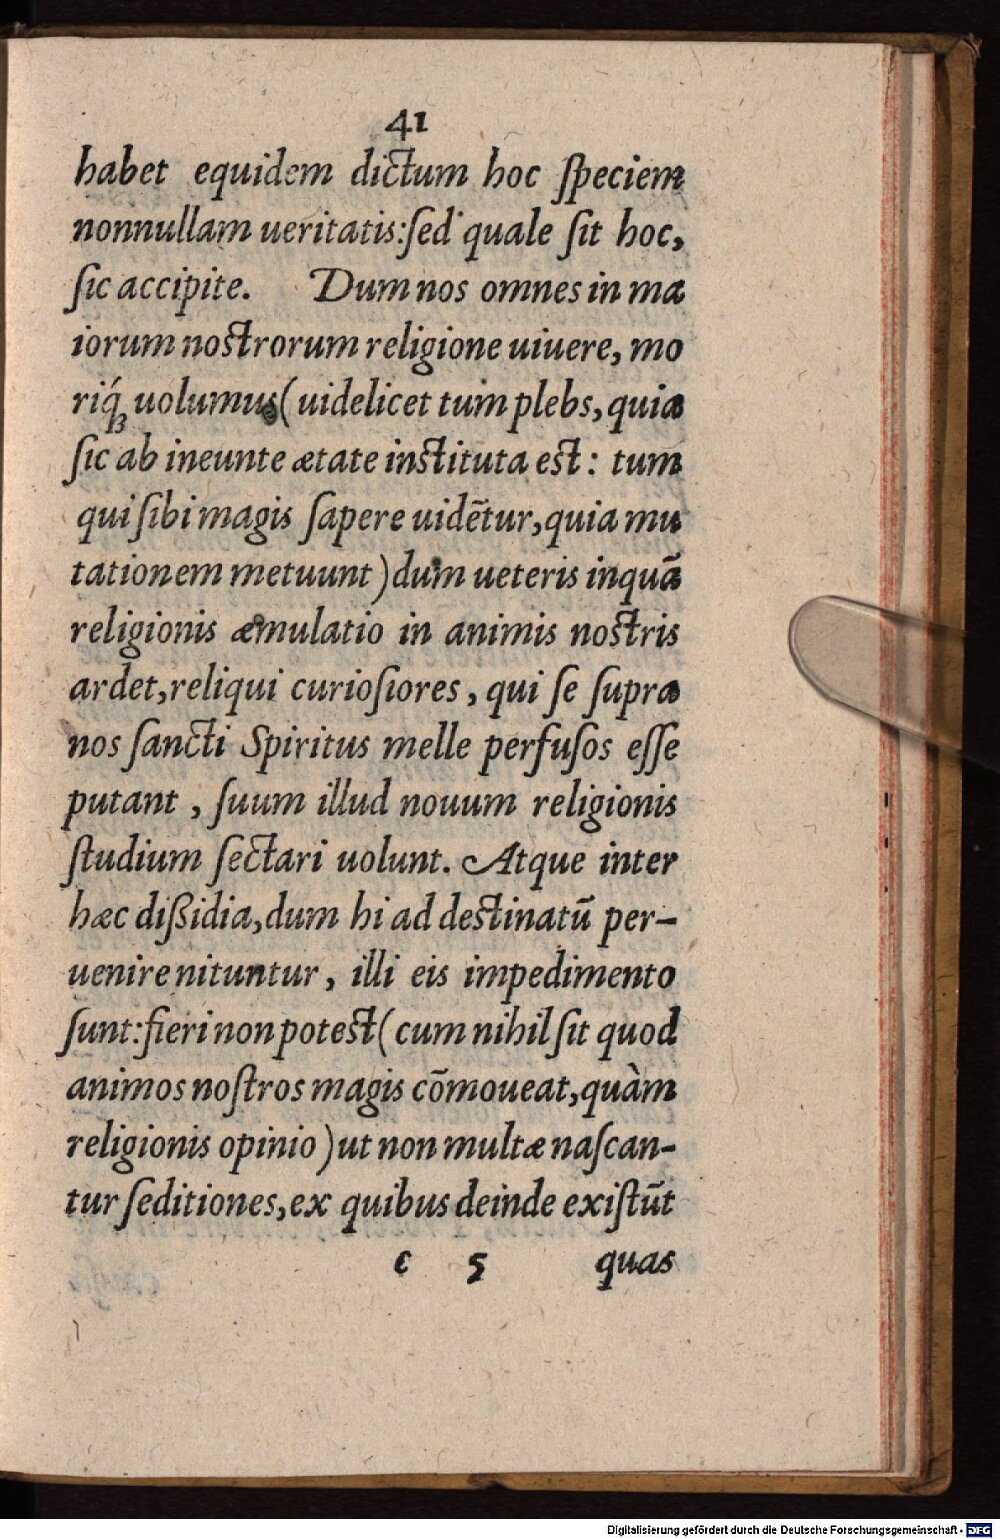 41
habet equidem dictum hoc ſpeciem
nonnullam ueritatis:ſed quale ſit hoc,
ſic accipite. Dum nos omnes in ma
iorum noſtrorum religione uiuere, mo
riq́ꝫ uolumus (uidelicet tum plebs, quia
ſic ab ineunte ætate inſtituta eſt: tum
qui ſibi magis ſapere uidẽtur, quia mu
tationem metuunt) dum ueteris inquã
religionis æmulatio in animis noſtris
ardet, reliqui curioſiores, qui ſe ſupra
nos ſancti Spiritus melle perfuſos eſſe
putant, ſuum illud nouum religionis
ſtudium ſectari uolunt. Atque inter
hæc dißidia, dum hi ad deſtinatũ per-
uenire nituntur, illi eis impedimento
ſunt: fieri non poteſt (cum nihil ſit quod
animos noſtros magis cõmoueat, quàm
religionis opinio) ut non multæ naſcan-
tur ſeditiones, ex quibus deinde exiſtũt
c 5 quas
Digitalisierung gefördert durch die Deutsche Forschungsgemeinschaft - DFG